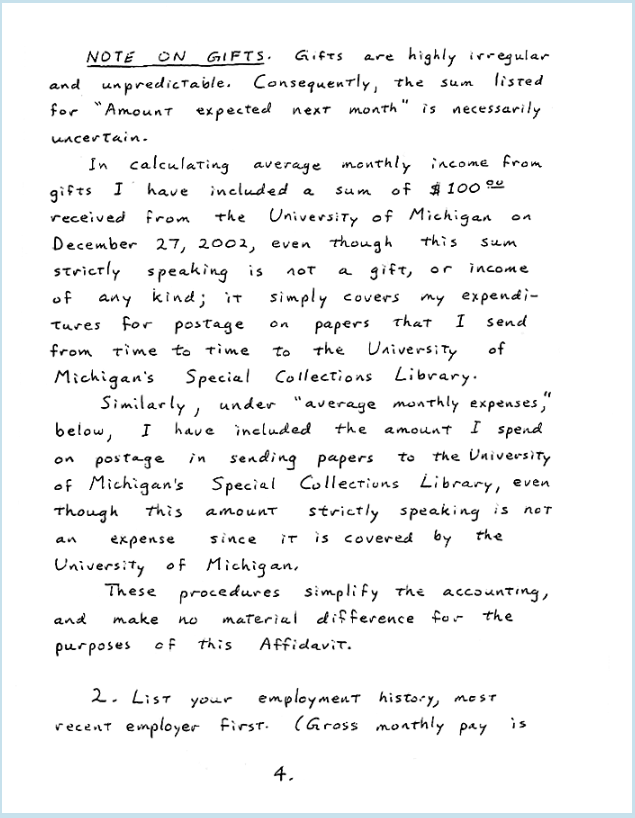 NOTE ON GIFTS. Gifts are highly irregular
and unpredictable. Consequently, the sum listed
for "Amount expected next month" is necessarily
uncertain.
In calculating average monthly income from
gifts I have included a sum of $100 00
received from the University of Michigan on
December 27, 2002, even though this sum
strictly speaking is not a gift, or income
of any kind; it simply covers my expendi-
tures for postage on papers that I send
from time to time to the University of
Michigan's Special Collections Library.
Similarly, under "average monthly expenses,"
below, I have included the amount I spend
on postage in sending papers to the University
of Michigan's Special Collections Library, even
though this amount strictly speaking is not
an expense since it is covered by the
University of Michigan.
These procedures simplify the accounting,
and make no material difference for the
purposes of this Affidavit.
2. List your employment history, most
recent employer first. (Gross monthly pay is
4.